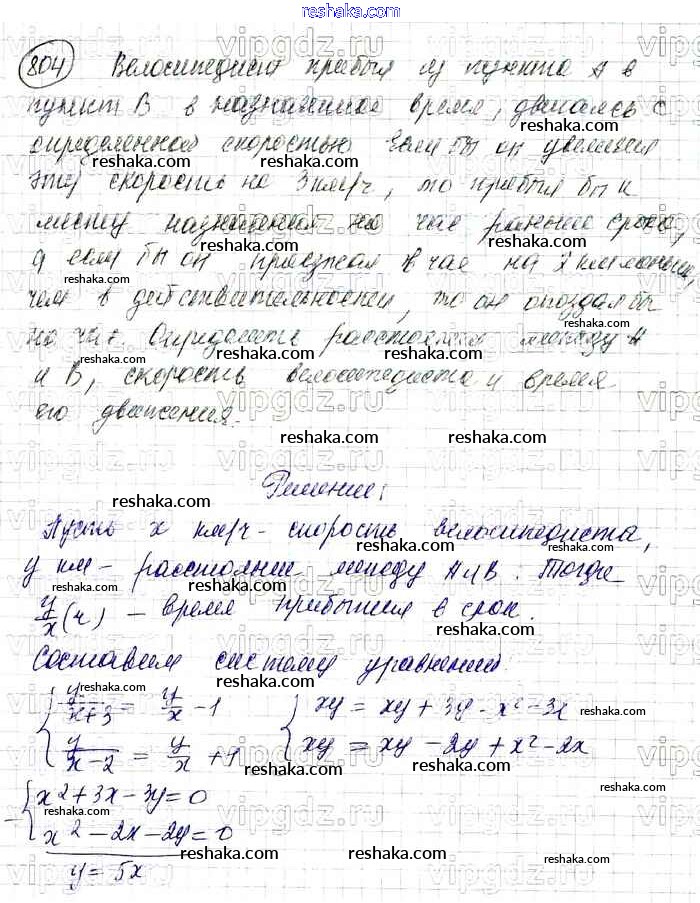 reshaka.com
804 Велосипедист прибыл из пункта А в
пункт В в назначенное время, двигаясь с
определенной скоростью. Если бы он увеличил
эту скорость на 3 км/ч, то прибыл бы к
месту назначения на час раньше срока,
а если бы он проезжал в час на 2 км меньше,
чем в действительности, то он опоздал бы
на час. Определите расстояние между А
и В, скорость велосипедиста и время
его движения.
Решение:
Пусть x км/ч - скорость велосипедиста,
y км - расстояние между А и В. Тогда
y/x (ч) - время прибытия в срок.
Составим систему уравнений:
{ y/(x+3) = y/x - 1 { xy = xy + 3y - x² - 3x
{ y/(x-2) = y/x + 1 { xy = xy - 2y + x² - 2x
- { x² + 3x - 3y = 0
{ x² - 2x - 2y = 0
y = 5x